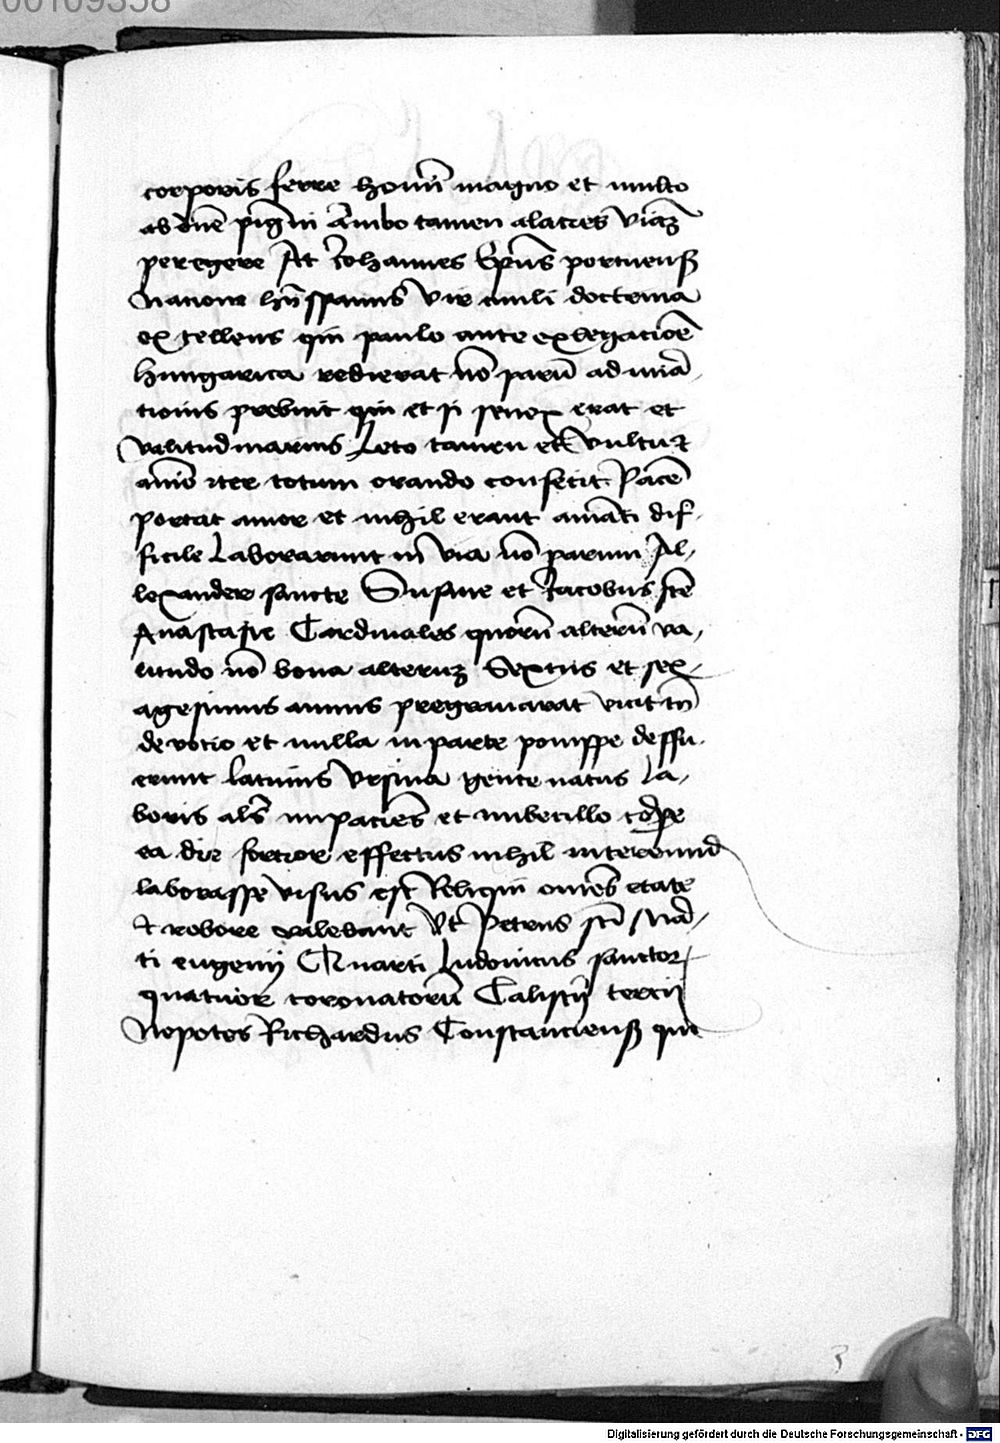 00109358
corporis ferre homī magno et multo
abdīe pīgui Ambo tamen alacres viā
peregere At Iohannes Epūs portuens
Natione hīspanus Vir ciuili doctrina
ex cellens qui paulo ante ex legacioē
hungarica redierat nō parū admirā
tionis prebuit qui et si senex erat et
valitudinarius Leto tamen et vultu et
aīo iter totum orando confecit Pacē
portat amor et nihil erant amāti dif
ficile Laborarunt in via nō parum Al
lexander sancte Susane et Iacobus scē
Anastasie Cardinales quorū alterū va
litudo nō bona alterum Sextus et sex
agesimus annus pregrauarat vicit tn̄
deuotio et nulla in parte pompe deffu
erunt latinus Vrsina gente natus La
boris al̄s impaciēs et imbecillo corpe
ea die fortior effectus nihil intereund
laborasse visus est Reliqui omēs etate
et robore valebant Vt Petrus scī Mar
ci eugenij Quarti Ludouicus sanctor
quatuor coronatorū Calistij tercij
Nepotes Richardus Constanciens qui
3
Digitalisierung gefördert durch die Deutsche Forschungsgemeinschaft - DFG